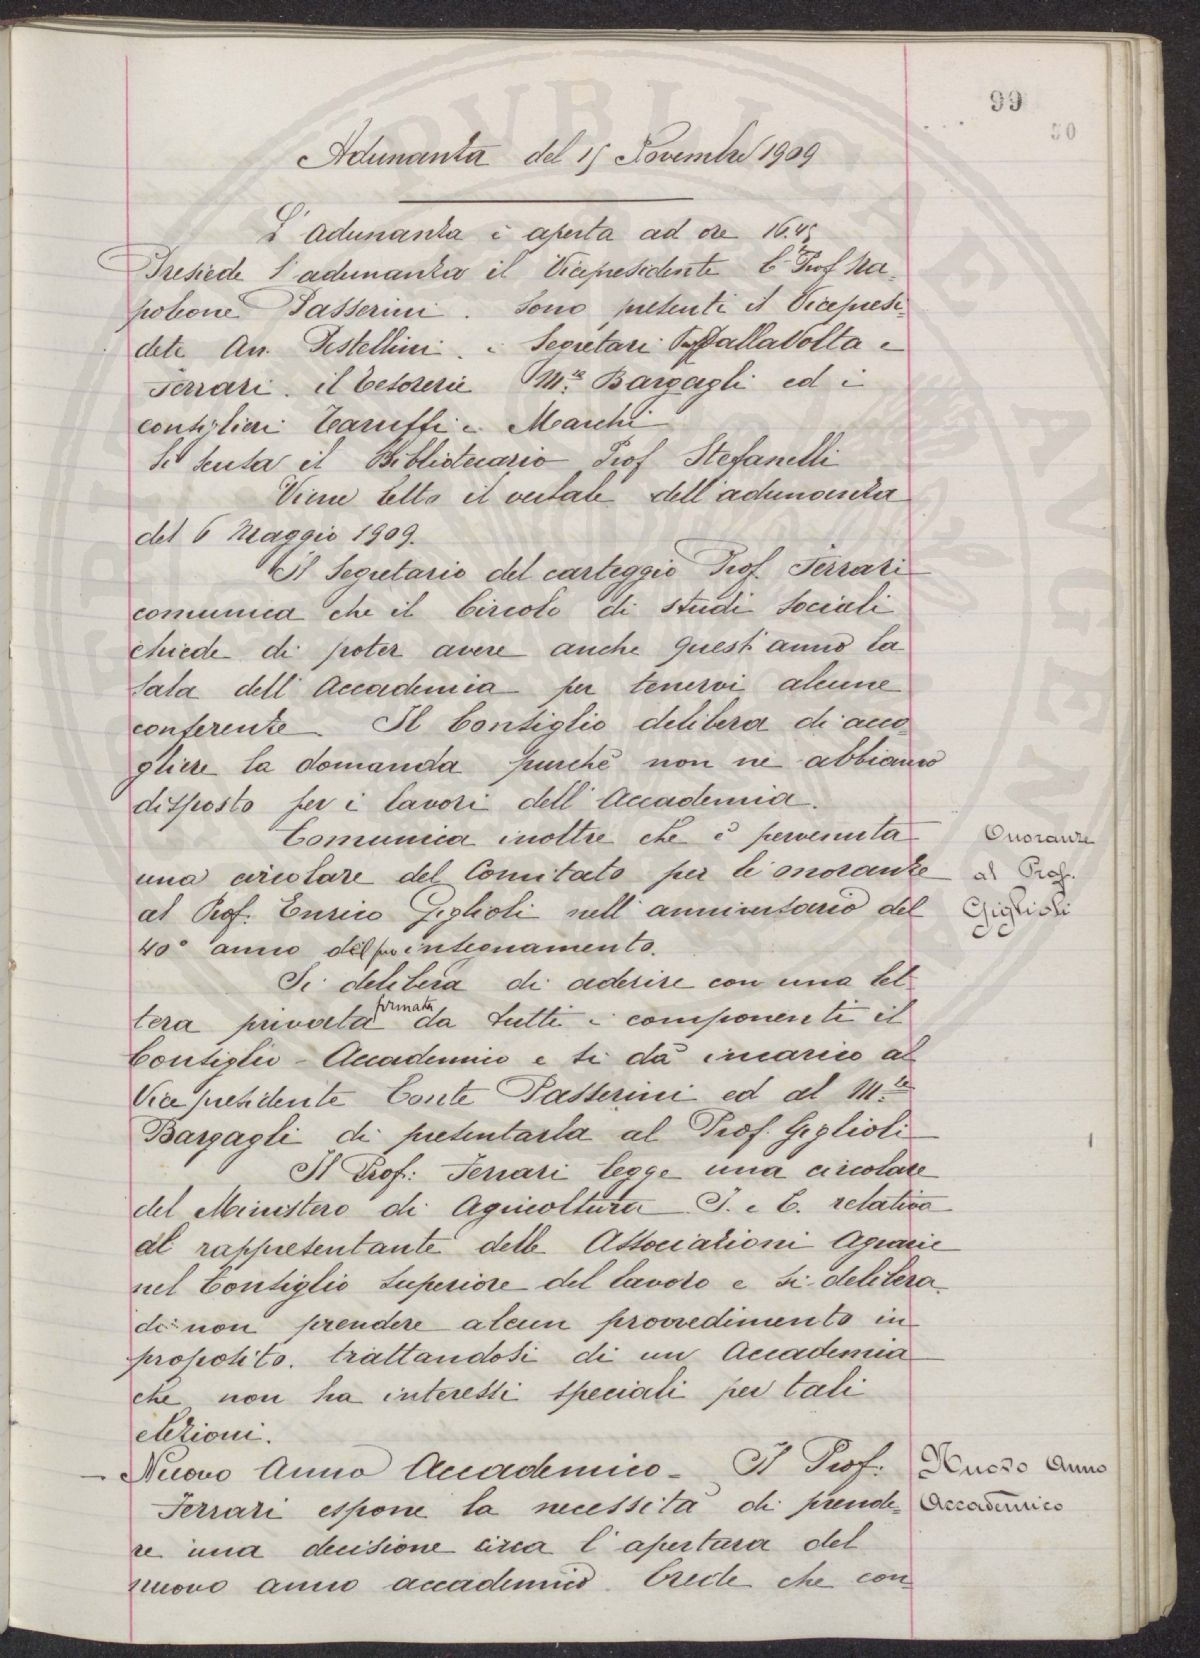 99
50
Adunanza del 15 Novembre 1909
L'adunanza è aperta ad ore 16.45
Presiede l'adunanza il Vicepresidente C.te Prof Na-
poleone Passerini. Sono presenti il Vicepresi-
dete Av. Pestellini, i Segretari Prof Dalla Volta e
Ferrari, il Tesoriere M.se Bargagli ed i
consiglieri Taruffi e Marchi
Si scusa il Bibliotecario Prof Stefanelli
Viene letto il verbale dell'adunanza
del 6 Maggio 1909.
Il Segretario del carteggio Prof. Ferrari
comunica che il Circolo di studi Sociali
chiede di poter avere anche quest'anno la
sala dell'Accademia per tenervi alcune
conferenze. Il Consiglio delibera di acco-
gliere la domanda purchè non ne abbiamo
disposto per i lavori dell'Accademia.
Comunica inoltre che è pervenuta
una circolare del Comitato per le onoranze
al Prof. Enrico Giglioli nell'anniversario del
40° anno del suo insegnamento.
Si delibera di aderire con una let-
tera privata firmata da tutti i componenti il
Consiglio Accademico e si dà incarico al
Vice presidente Conte Passerini ed al M.se
Bargagli di presentarla al Prof. Giglioli
Il Prof. Ferrari legge una circolare
del Ministero di Agricoltura I. e C. relativa
al rappresentante delle Associazioni Agrarie
nel Consiglio Superiore del lavoro e si delibera
di non prendere alcun provvedimento in
proposito, trattandosi di un Accademia
che non ha interessi speciali per tali
elezioni.
- Nuovo Anno Accademico - Il Prof.
Ferrari espone la necessità di prende-
re una decisione circa l'apertura del
nuovo anno accademico. Crede che con-
Onoranze
al Prof.
Giglioli
Nuovo Anno
Accademico